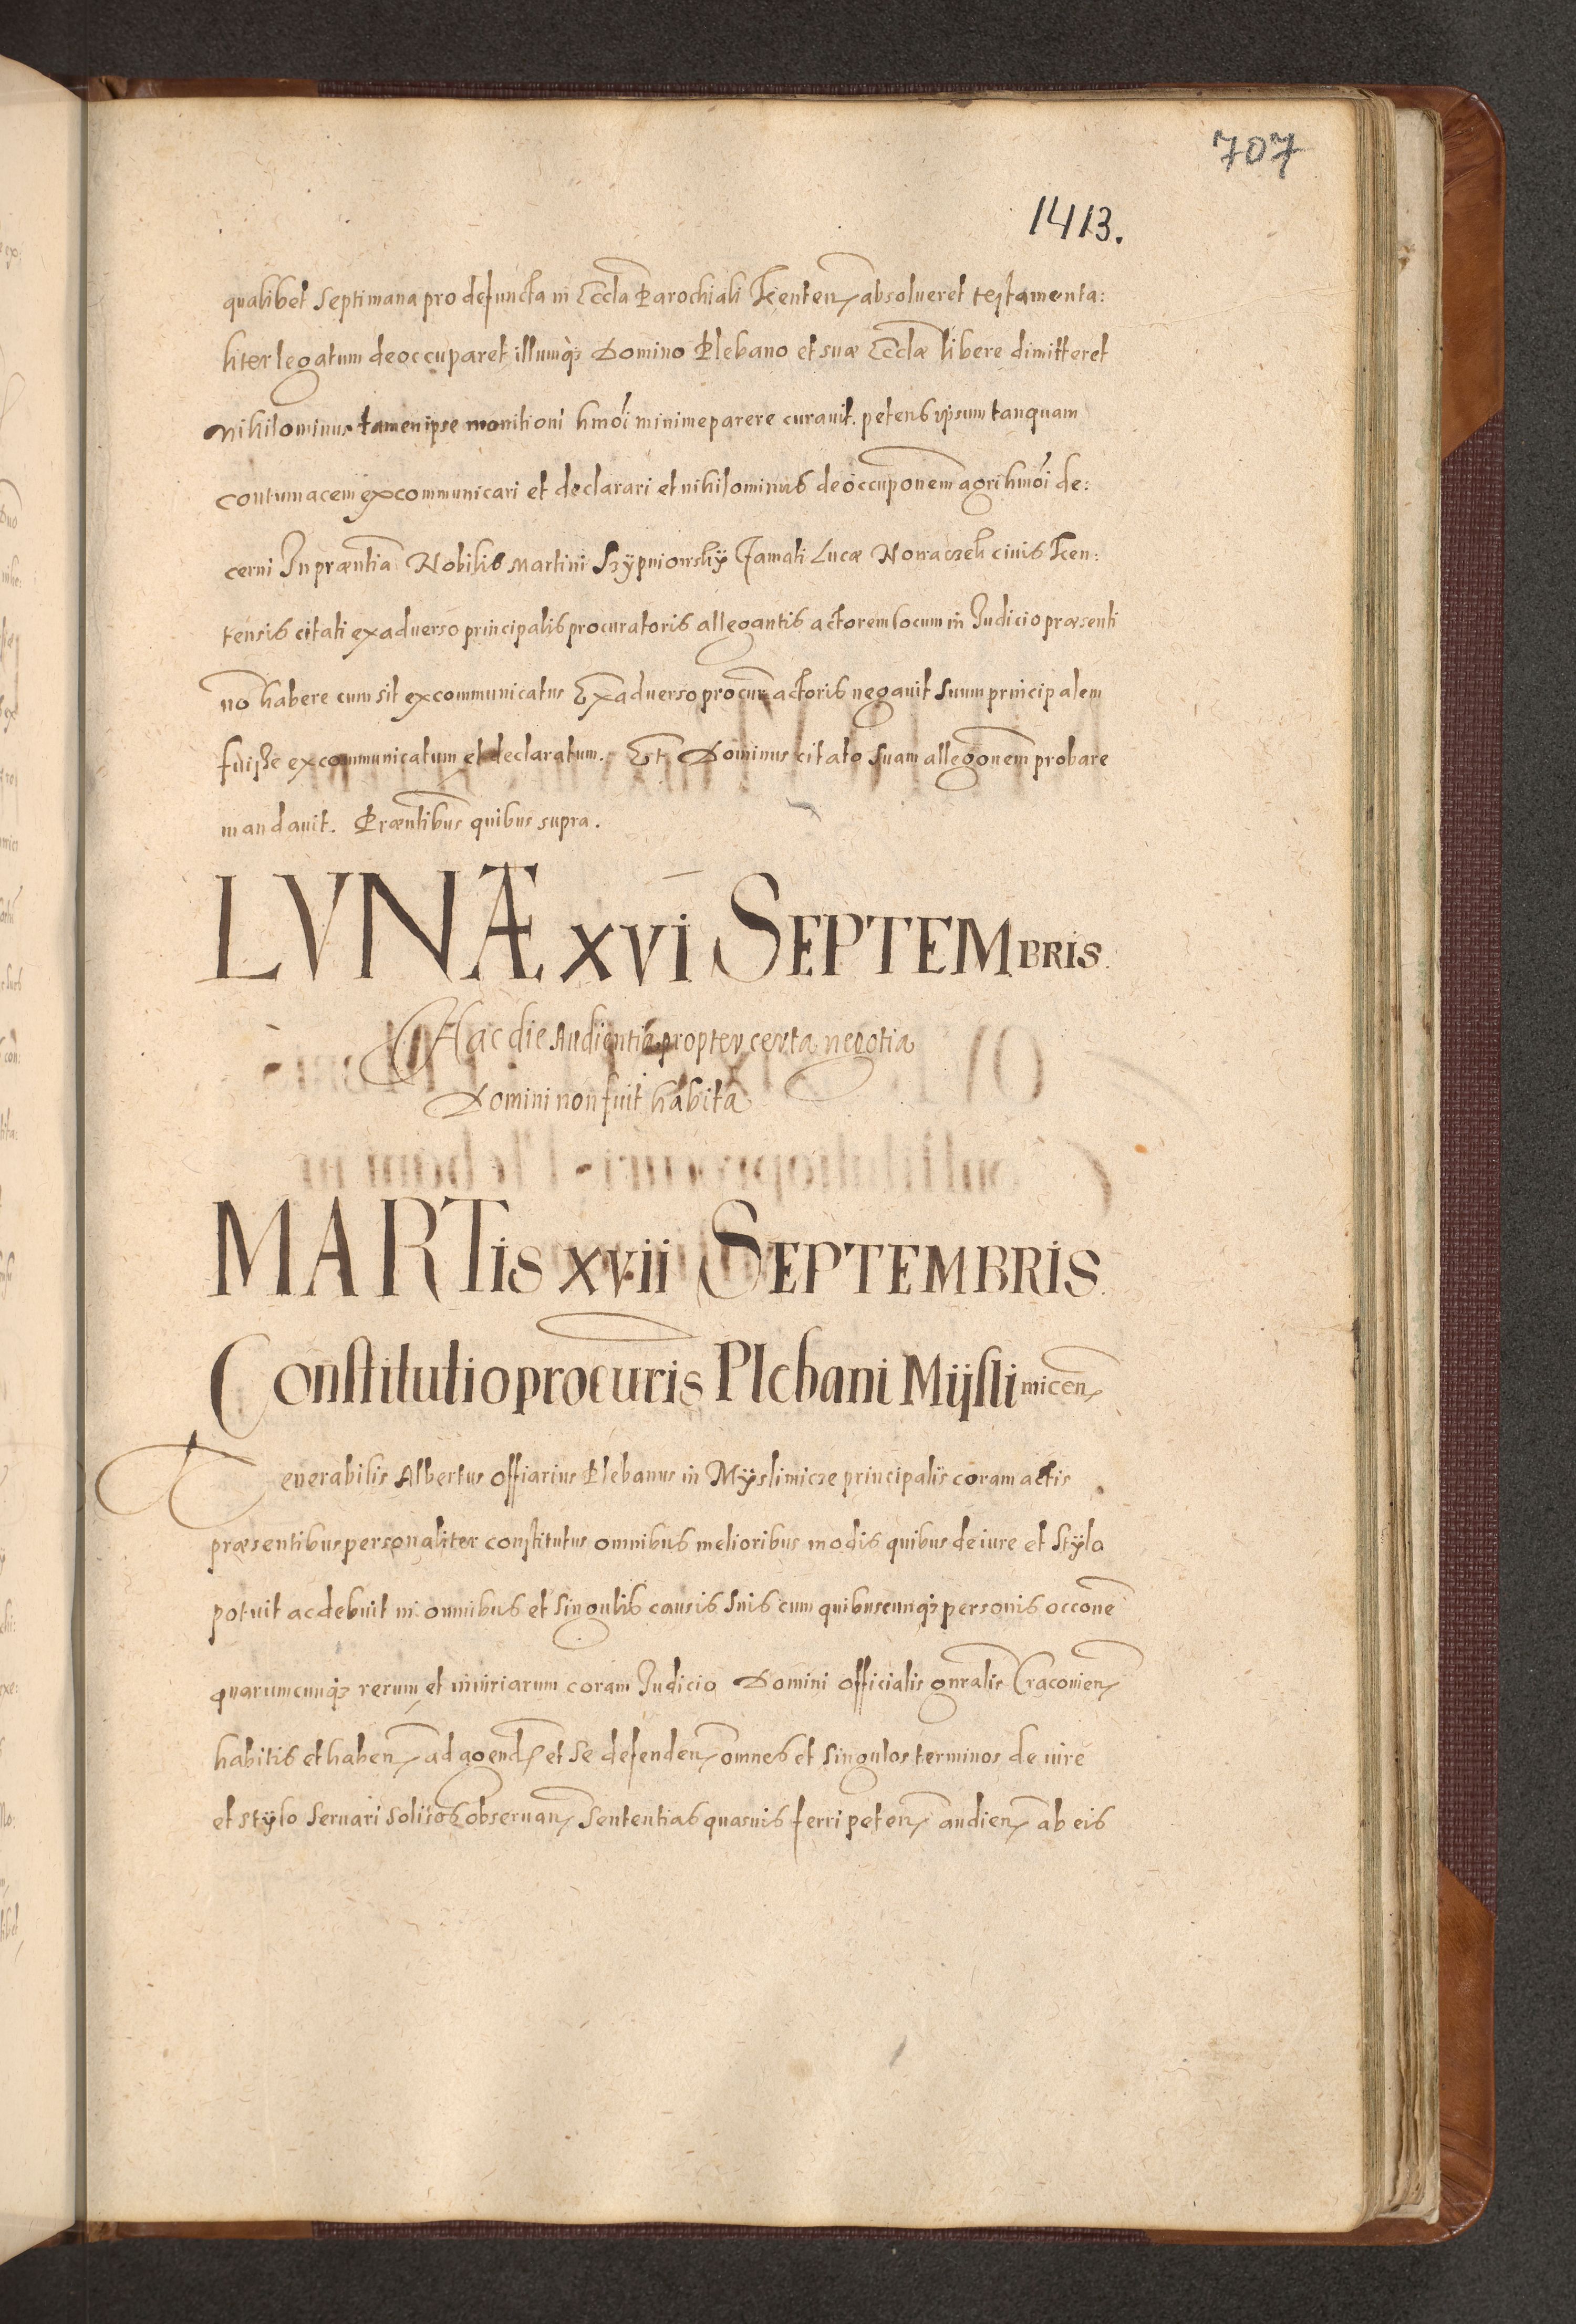 707
1413.
qualibet septimana pro defuncta in Eccla Parochiali Kenten absolueret testamenta:
liter legatum deoccuparet illumq₃ Domino Plebano et suæ Ecclæ libere dimitteret
nihilominus tamen ipse monitioni hmoi minime parere curauit. petens ipsum tanquam
contumacem excommunicari et declarari et nihilominus deoccuponem agri hmoi de:
cerni In præntia Nobilis Martini Szÿpniowskÿ famati Lucæ Nowaczek ciuis Ken:
tensis citati ex aduerso principalis procuratoris allegantis actorem locum in Judicio præsenti
no habere cum sit excommunicatus Ex aduerso procur actoris negauit suum principalem
fuiße excommunicatum et declaratum. Et Dominus citato suam allegonem probare
mandauit. Præntibus quibus supra.
LVNÆ XVI SEPTEMBRIS.
Hac die Audientia propter certa negotia
Domini non fuit habita
MARTis xvii SEPTEMBRIS.
Constitutio procuris Plebani Mÿslimicen
Venerabilis Albertus Offiarius Plebanus in Mÿslimicze principalis coram actis
præsentibus personaliter constitutus omnibus melioribus modis quibus de iure et stÿlo
potuit ac debuit in omnibus et singulis causis suis cum quibuscunq₃ personis occone
quarumcunq₃ rerum et iniuriarum coram Judicio Domini Officialis gnralis Cracouien
habitis et haben ad agend et se defenden omnes et singulos terminos de iure
et stÿlo seruari solitos obseruan sententias quasuis ferri peten audien ab eis